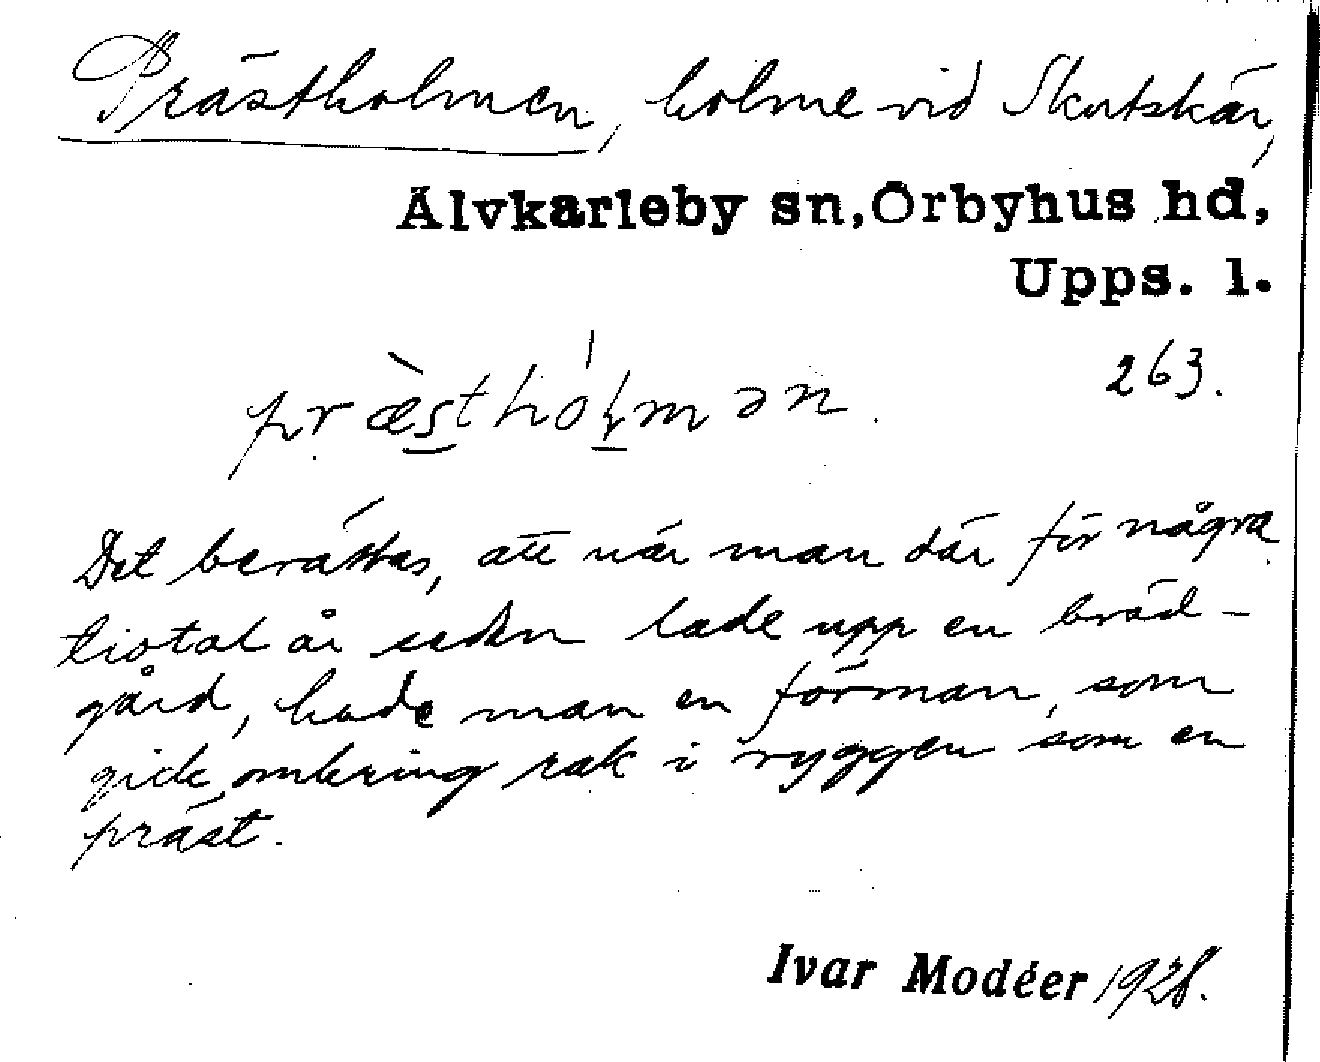 Prästholmen, holme vid Skutskär,
Älvkarleby sn, Örbyhus hd,
Upps. l.
263.
præ̀sthólmən.
Det berättas, att när man där för några
tiotal år sedan lade upp en bräd-
gård, hade man en förman, som
gick omkring rak i ryggen som en
präst.
Ivar Modéer 1928.